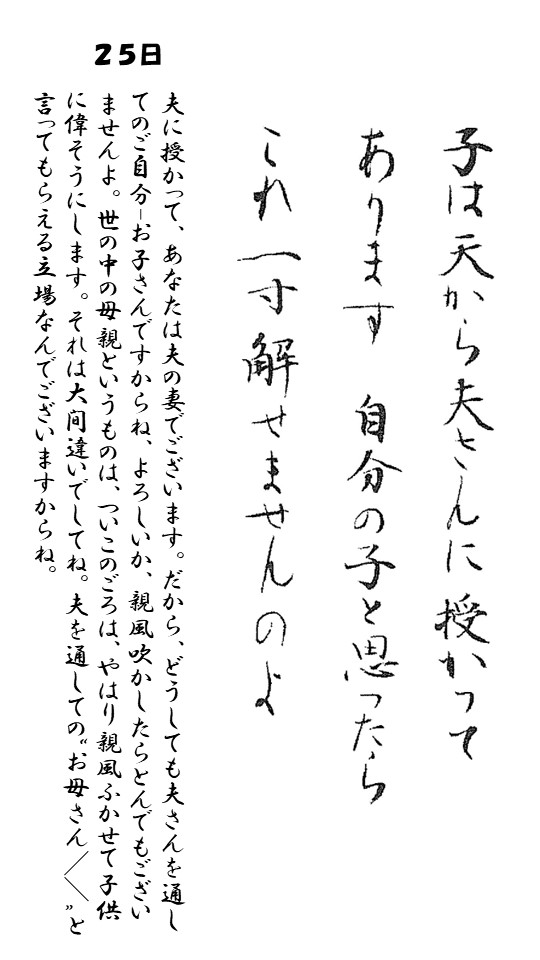 25日
子は天から夫さんに授かって
あります 自分の子と思ったら
これ一寸解せませんのよ
夫に授かって、あなたは夫の妻でございます。だから、どうしても夫さんを通し
てのご自分―お子さんですからね、よろしいか、親風吹かしたらとんでもござい
ませんよ。世の中の母親というものは、ついこのごろは、やはり親風ふかせて子供
に偉そうにします。それは大間違いでしてね。夫を通しての〝お母さん〳〵〟と
言ってもらえる立場なんでございますからね。